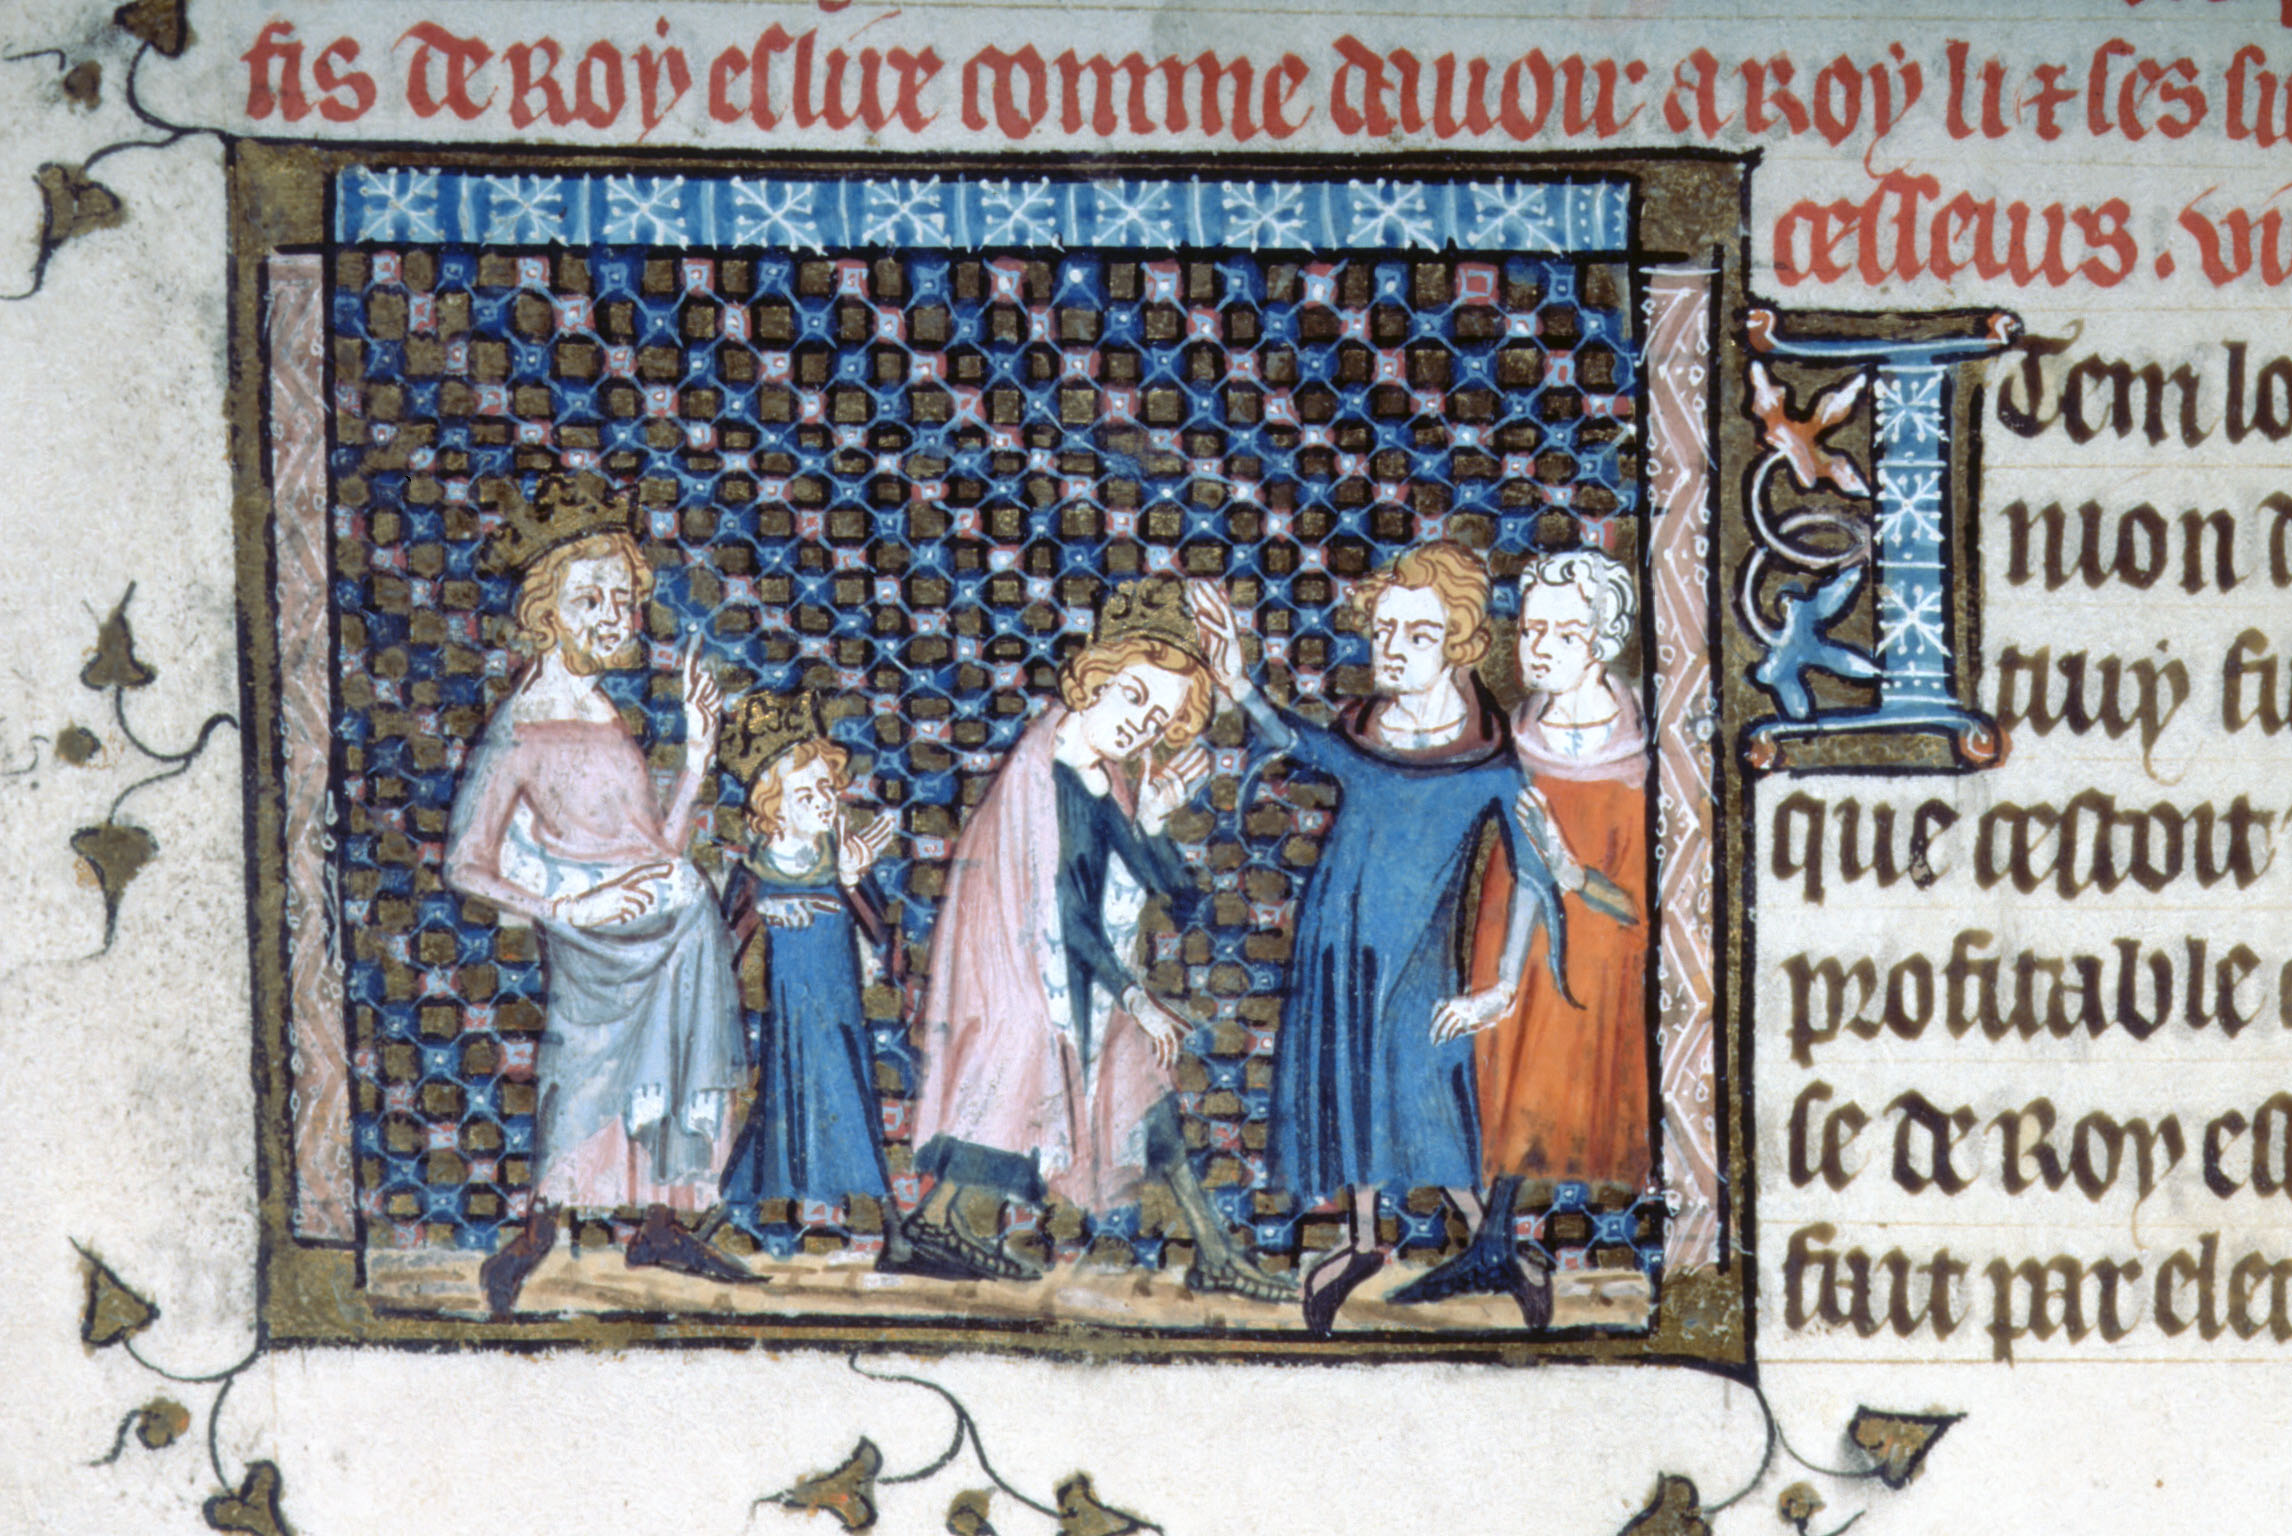 fis de Roy eslire comme dauoir a Roy li & ses su
cesseurs . vi
ITem lo
nion d
tuuy fu
que cestoit
profitable
le de Roy esl
fait par elec